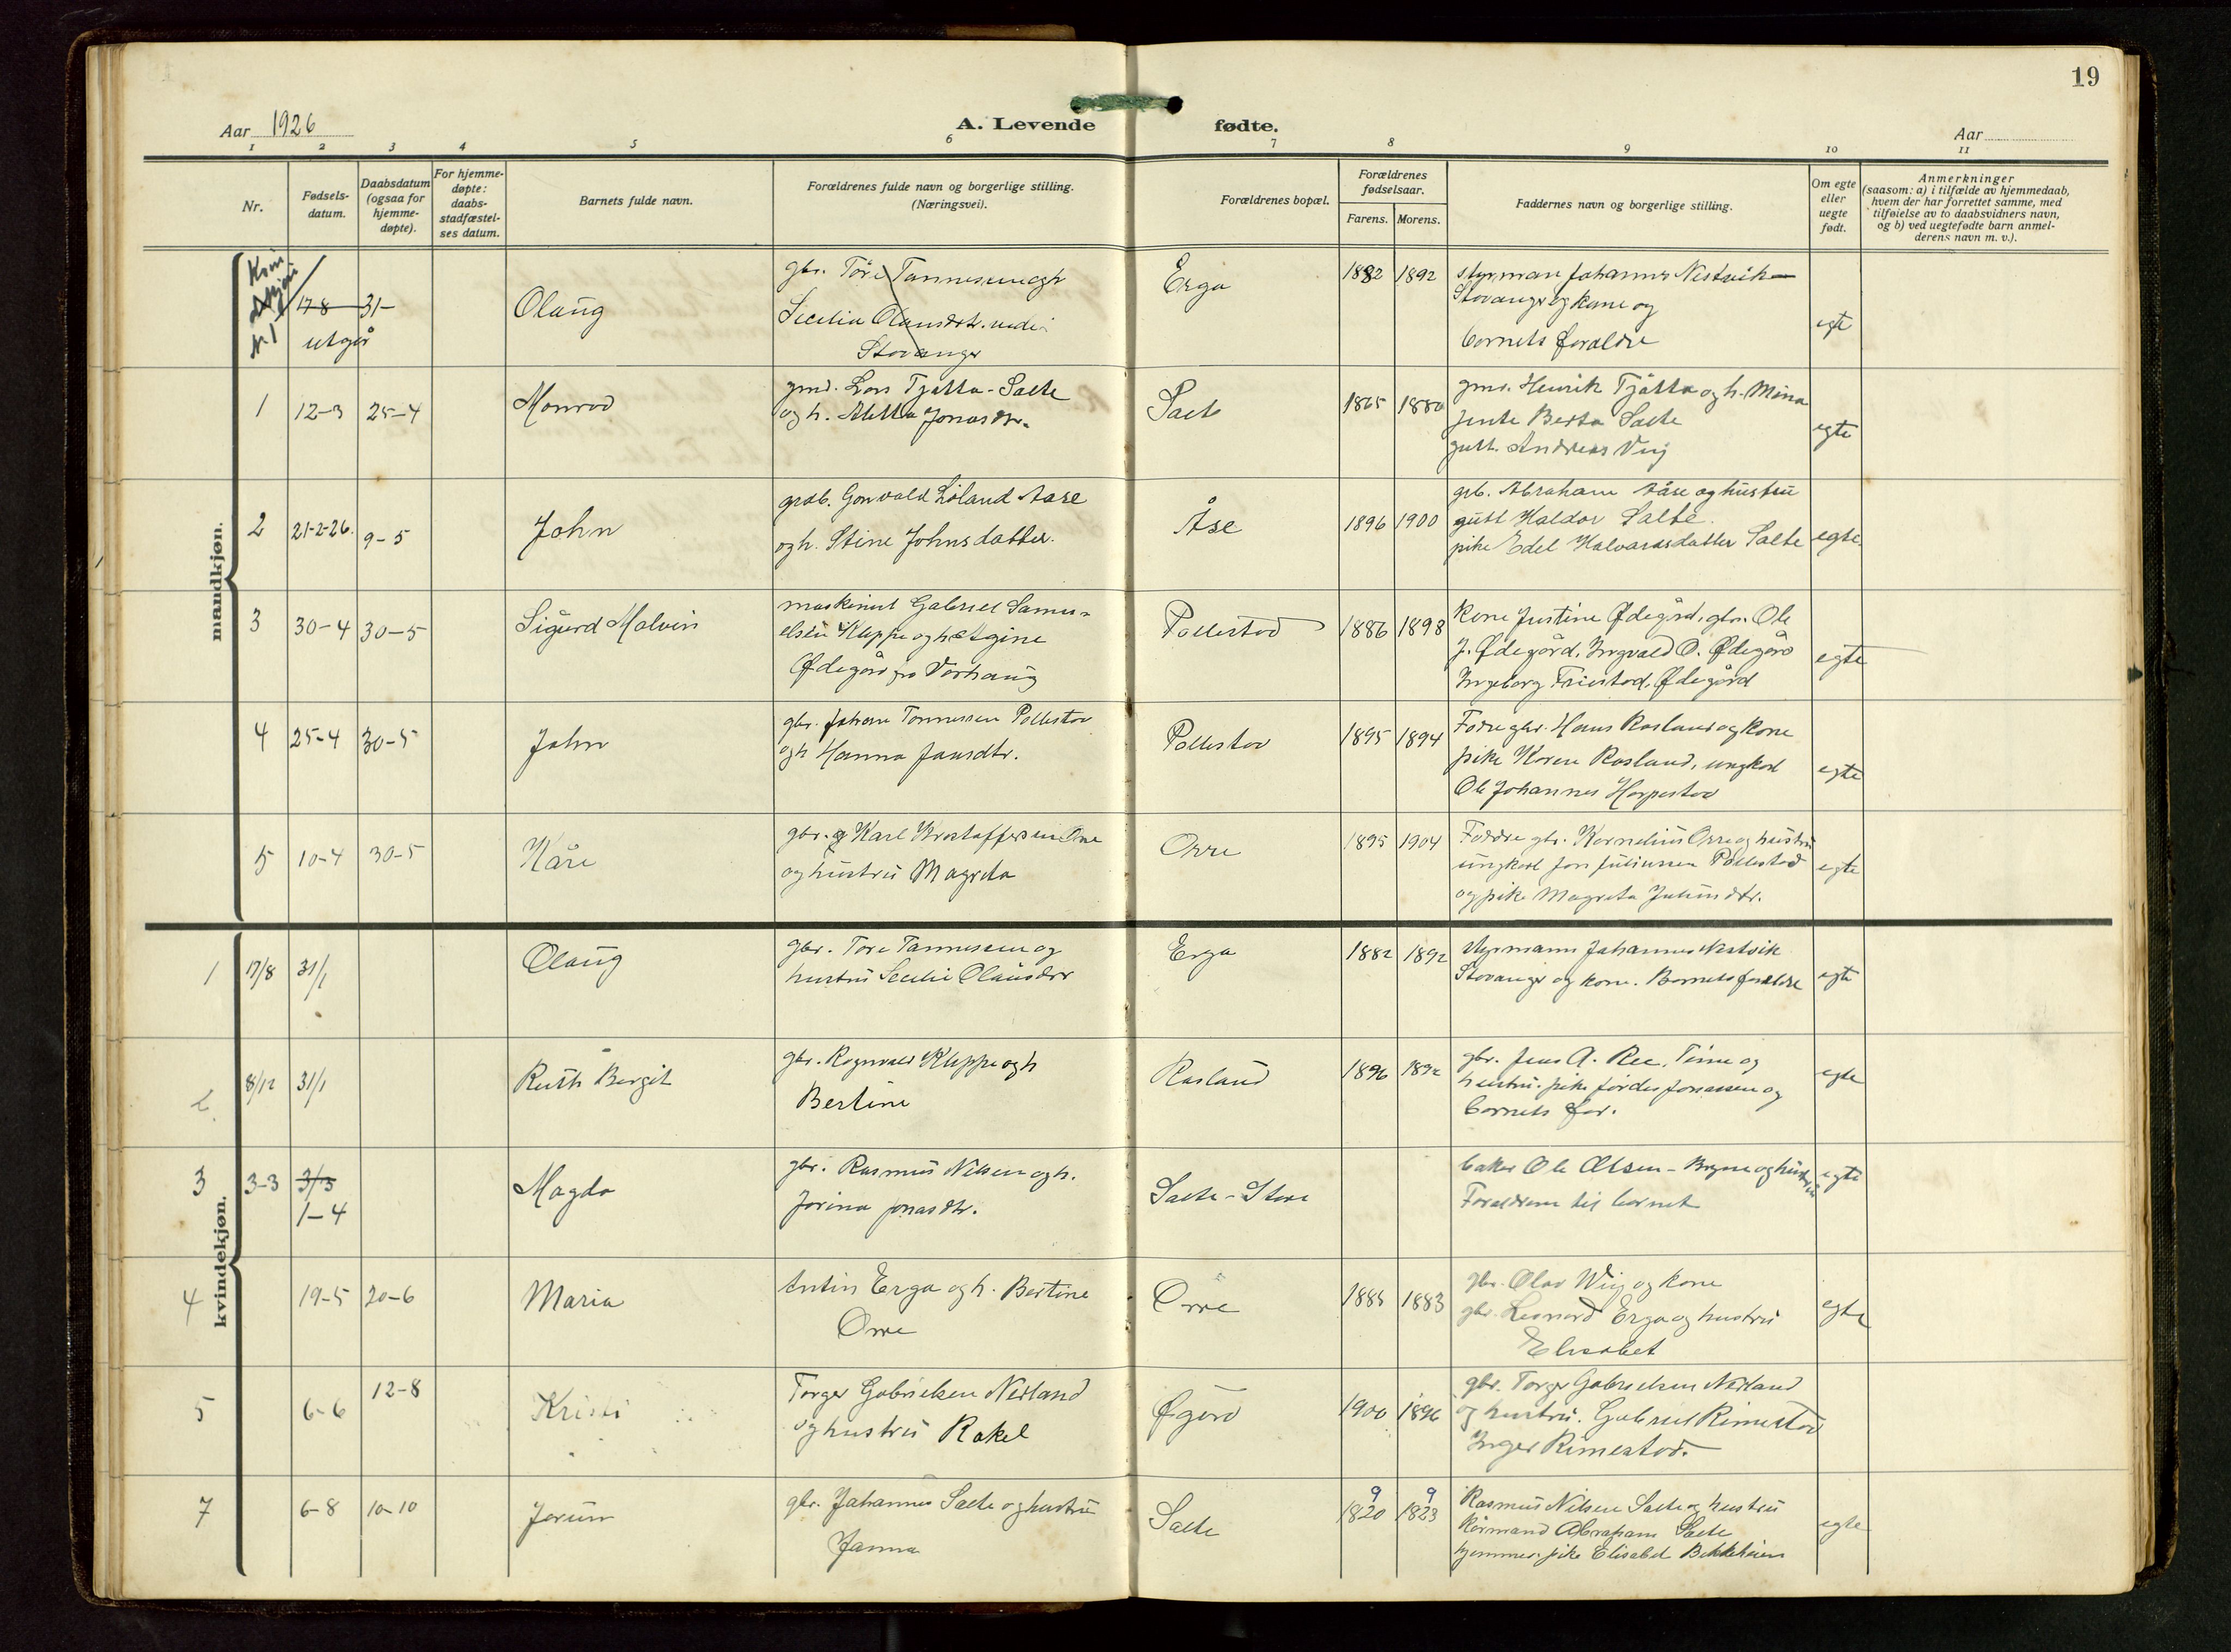 19
Aar 1926
A. Levende fødte.
Aar
1 2 3 4 5 6 7 8 9 10 11
Nr.
Fødsels-
datum.
Daabsdatum
(ogsaa for
hjemme-
døpte).
For hjemme-
døpte:
daabs-
stadfæstel-
ses datum.
Barnets fulde navn.
Forældrenes fulde navn og borgerlige stilling.
(Næringsvei).
Forældrenes bopæl.
Forældrenes
fødselsaar.
Farens. Morens.
Faddernes navn og borgerlige stilling.
Om egte
eller
uegte
født.
Anmerkninger
(saasom: a) i tilfælde av hjemmedaab,
hvem der har forrettet samme, med
tilføielse av to daabsvidners navn,
og b) ved uegtefødte barn anmel-
derens navn m. v.).
mandkjøn.
17-8 31-
utgår
Olaug
gbr. Tore Tønnesen og h
Secilia Olausdtr. nedi
Stavanger
Erga
1882 1892
styrman Johannes Nestvik
Stavanger og kone og
barnets foraldre
egte
1 12-3 25-4
Monrad
gmd. Lars Tjøtta - Salte
og h. Aletta Jonasdtr.
Salte
1865 1880
gmd. Henrik Tjåtta og h. Mina
jente Berta Salte
gutt. Andreas Vig
egte
2 21-2-26. 9-5
John
grdb. Gorvald Løland Aase
og h. Stine Johnsdatter.
Åse
1896 1900
grb. Abraham Aase og hustru
gutt Haldor Salte.
pike Edel Halvardsdatter Salte
egte.
3 30-4 30-5
Sigurd Malvin
maskinist Gabriel Samu-
elsen Kleppe og h. Regine
Ødegård fra Varhaug
Pollestad
1886 1898
Kone Justine Ødegård, gbr. Ole
J. Ødegård, Ingvald O. Ødegård
Ingeborg Friestad, Ødegård
egte
4 25-4 30-5
John
gbr. Johan Tønnessen Pollestad
og h Hanna Jansdtr.
Pollestad
1895 1894
Fadre gbr. Hans Rosland og kone
pike Karen Rosland, ungkarl
Ole Johannes Horpestad
egte
5 10-4 30-5
Kåre
gbr. Karl Kristoffersen Orre
og hustru Magreta
Orre
1895 1904
Faddre gbr. Kornelius Orre og hustru
ungkarl Jon Juliussen Pollestad
og pike Magreta Juliusdtr.
egte
kvindekjøn.
1 17/8 31/1
Olaug
gbr. Tore Tønnessen og
hustru Secilie Olausdtr
Erga
1882 1892
Styrmann Johannes Nestvik
Stavanger og kone. Barnets foreldre
egte
2 8/12 31/1
Ruth Bergit
gbr. Ragnvald Kleppe og h
Bertine
Rosland
1896 1892
gbr. Jens A. Ree, Time og
hustru. pike Jordis Jonassen og
barnets for.
egte
3 3-3 3/3
1-4
Magda
gbr. Rasmus Nilsen og h.
Jorina Jonasdtr.
Salte - Store
baker Ole Olsen - Bryne og hustru
Foreldrene til barnet
egte
4 19-5 20-6
Maria
Antin Erga og h. Bertine
Orre
Orre
1885 1883
gbr. Olav Wig og kone
gbr. Leonard Erga og hustru
Elisabet
egte
5 6-6 12-8
Kristi
Torger Gabrielsen Nerland
og hustru Rakel
Øgård
1900 1896
gbr. Torger Gabrielsen Nerland
og hustru. Gabriel Rimestad
Inger Rimestad.
7 6-8 10-10
Jorunn
gbr. Johannes Salte og hustru
Janna
Salte
9 9
1820 1823
Rasmus Nilsen Salte og hustru
Kårmand Abraham Salte
hjemmev. pike Elisabet Bekkeheien
egte